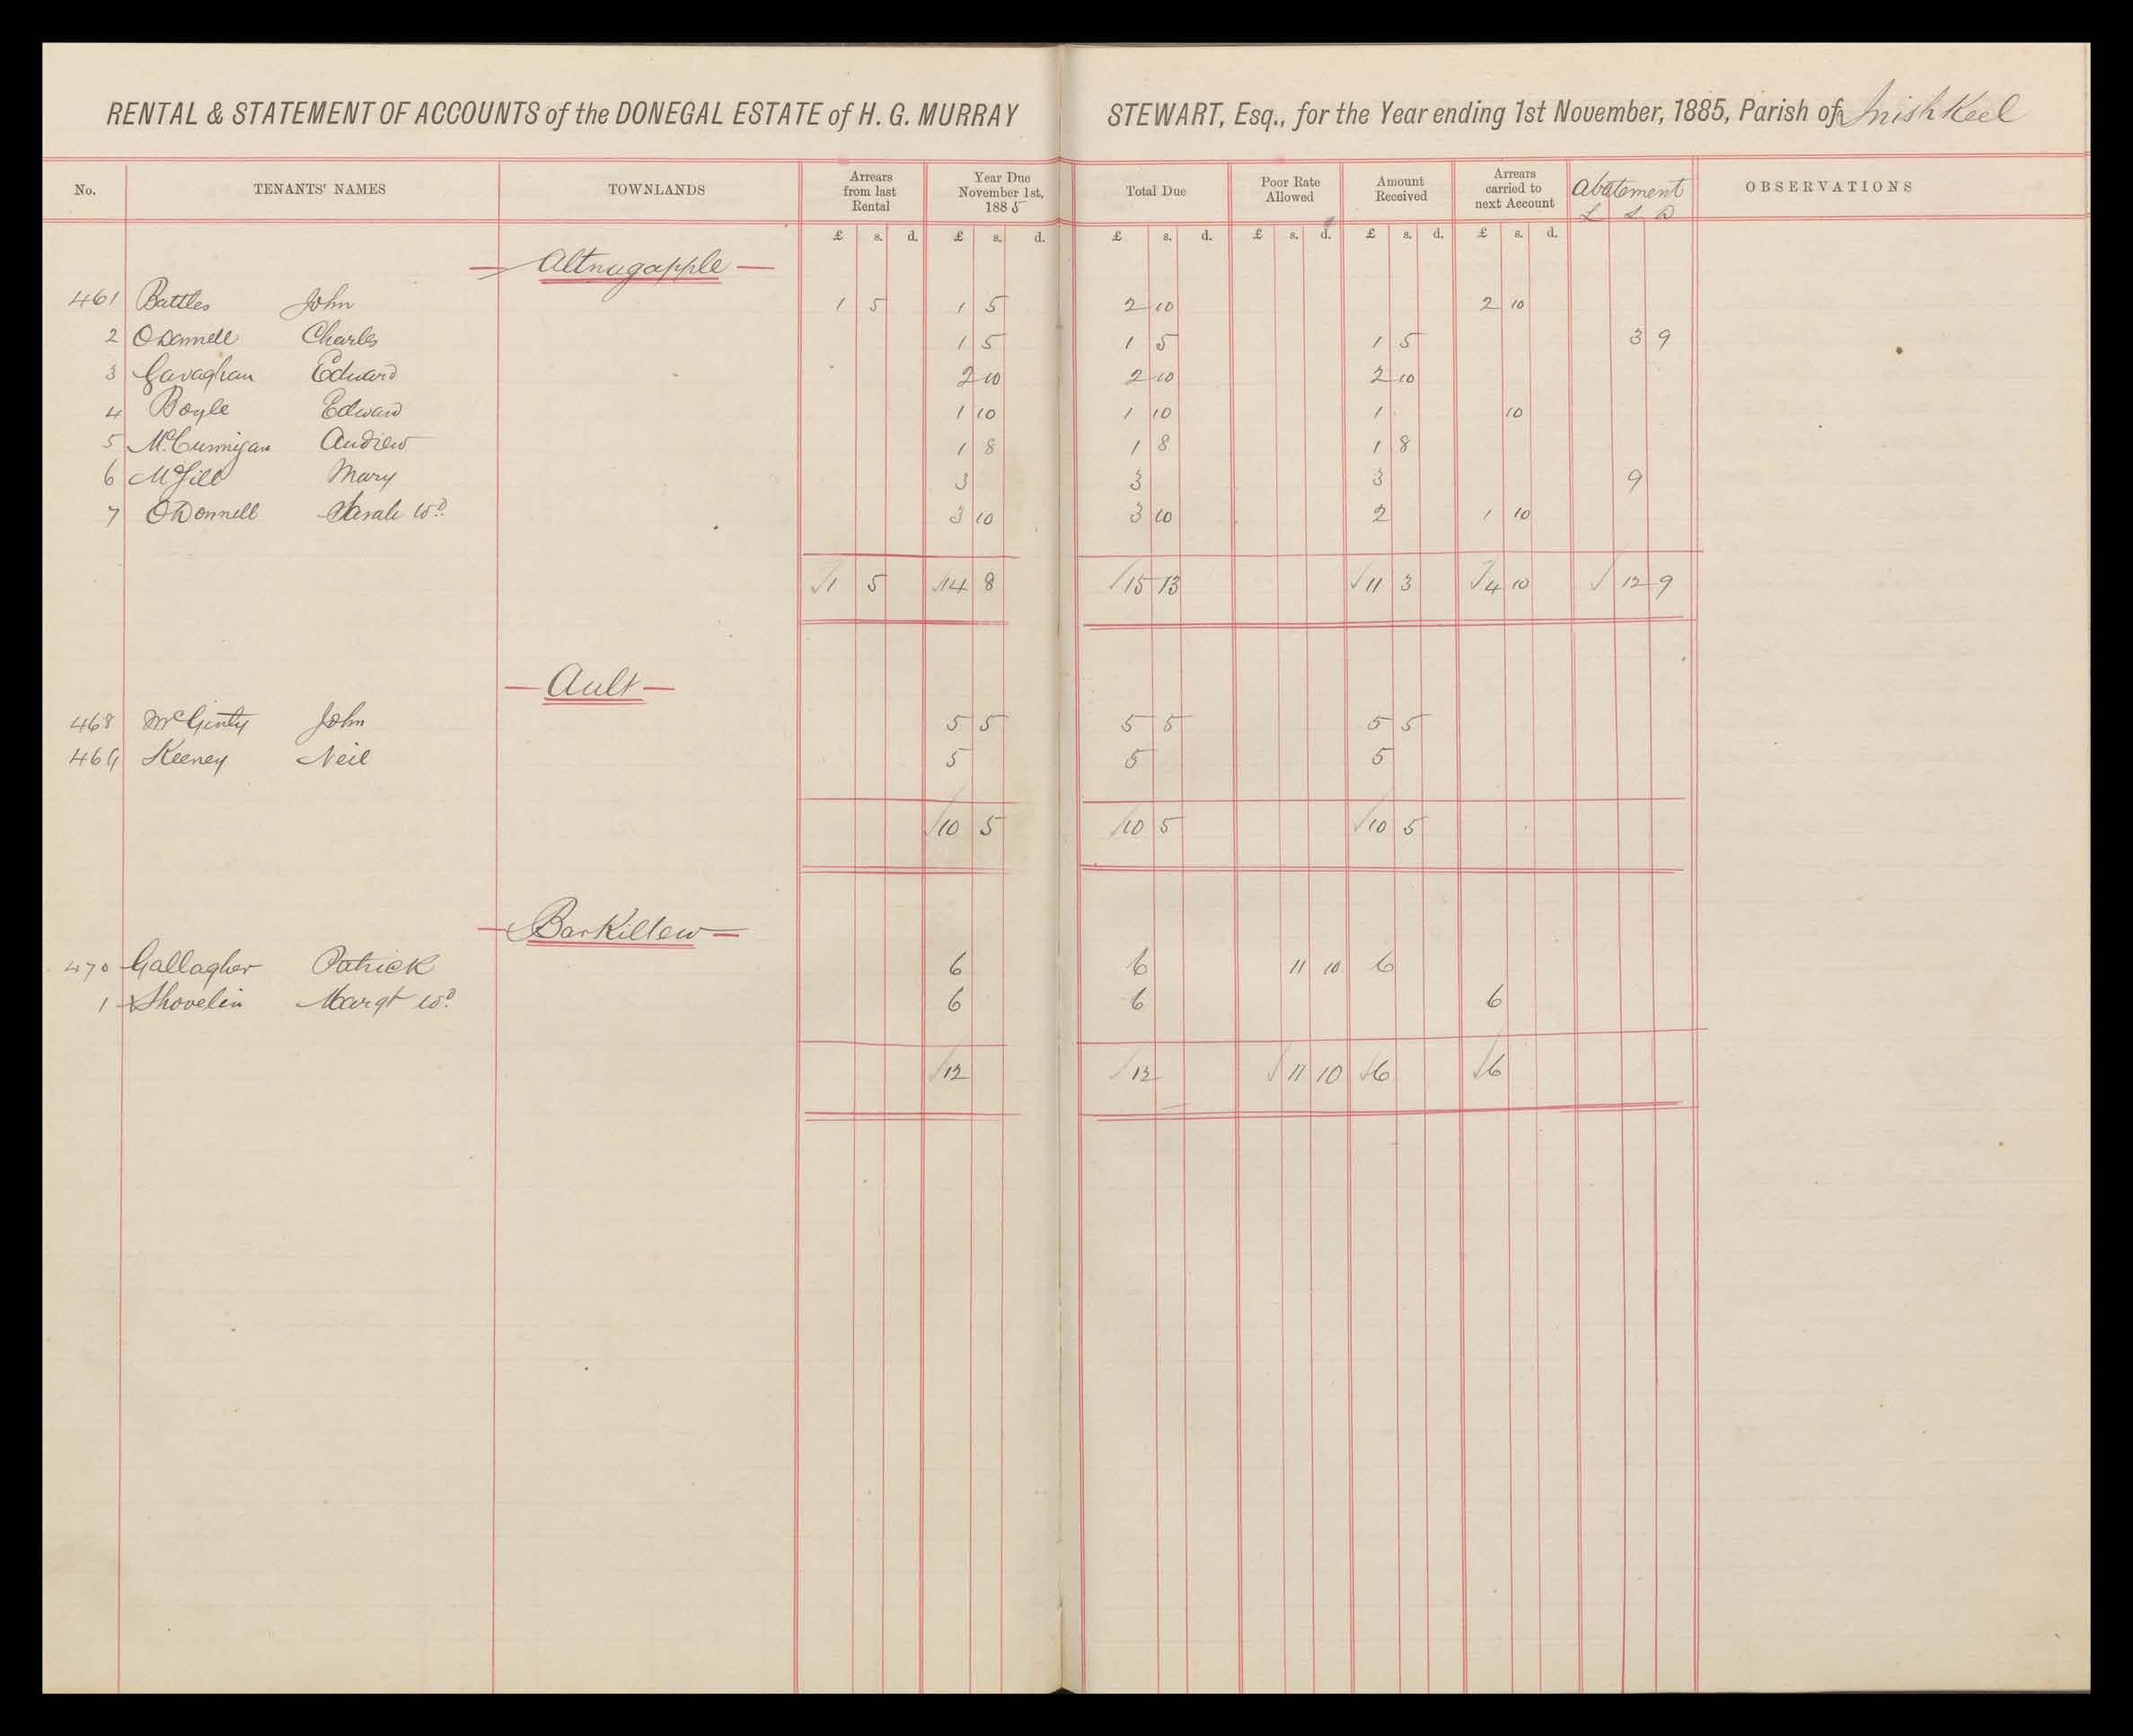 RENTAL & STATEMENT OF ACCOUNTS of the DONEGAL ESTATE of H. G. MURRAY STEWART, Esq., for the Year ending 1st November, 1885, Parish of InishKeel
No. TENANTS' NAMES TOWNLANDS Arrears from last Rental Year Due November 1st, 1885 Total Due Poor Rate Allowed Amount Received Arrears carried to next Account Abatement £ s D OBSERVATIONS
£ s. d. £ s. d. £ s. d. £ s. d. £ s. d. £ s. d.
Altnagapple
461 Battles John 1 5 1 5 2 10 2 10
2 ODonnell Charles 1 5 1 5 1 5 3 9
3 Gavaghan Edward 2 10 2 10 2 10
4 Boyle Edward 1 10 1 10 1 10
5 McCunnigan Andrew 1 8 1 8 1 8
6 McGill Mary 3 3 3 9
7 ODonnell Sarah Wd 3 10 3 10 2 1 10
1 5 14 8 15 13 11 3 4 10 12 9
Ault
468 McGinty John 5 5 5 5 5 5
469 Keeney Neil 5 5 5
10 5 10 5 10 5
BarKillew
470 Gallagher Patrick 6 6 11 10 6
1 Shovelin Margt Wd 6 6 6
12 12 11 10 6 6